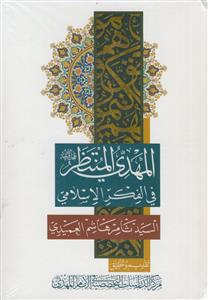 المهدي المنتظر
في الفكر الإسلامي
السيد ثامر هاشم العميدي
تقديم وتحقيق
مركز الدراسات التخصصية في الإمام المهدي